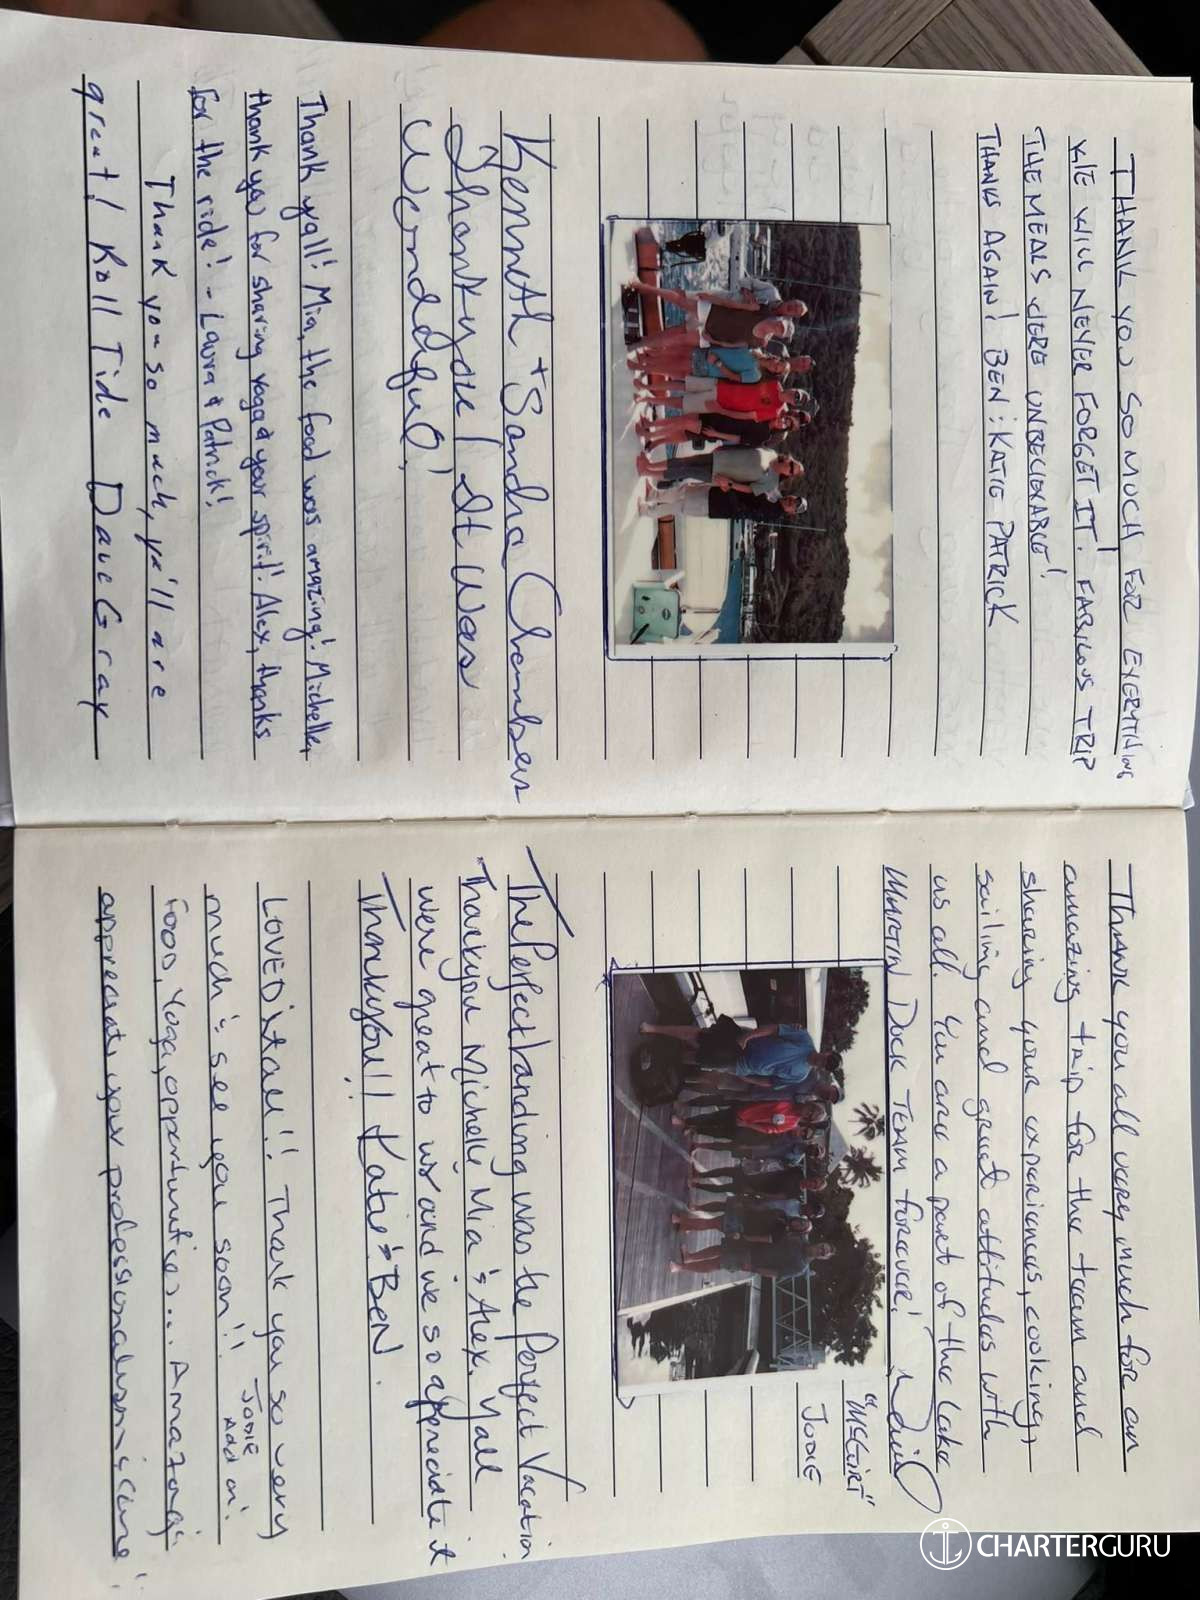 THANK YOU SO MUCH FOR EVERYTHING
WE WILL NEVER FORGET IT! FABULOUS TRIP
THE MEALS WERE UNBELIEVABLE!
THANKS AGAIN! BEN & KATIE PATRICK
Kenneth + Sandra Chambers
Thank you! It Was
Wonderful!
Thank yall! Mia, the food was amazing! Michelle,
thank you for sharing yoga & your spirit! Alex, thanks
for the ride! - Laura & Patrick!
Thank you so much, ya'll are
great! Roll Tide Dave Gray
Thank you all very much for an
amazing trip for the team and
sharing your experiences, cooking,
sailing and great attitudes with
us all. You are a part of the Lake
MARTIN DOCK TEAM forever!
"McGirt"
JODIE
The Perfect landing was the Perfect Vacation
Thankyou Michelle Mia & Alex. Yall
were great to us and we so appreciate it
Thankyou!! Katie & BEN.
LOVED it all!! Thank you so very
much & see you soon!! JODIE
Add on:
Food, Yoga, opportunities... Amazong!
appreciate your professionalism & care!
CHARTERGURU